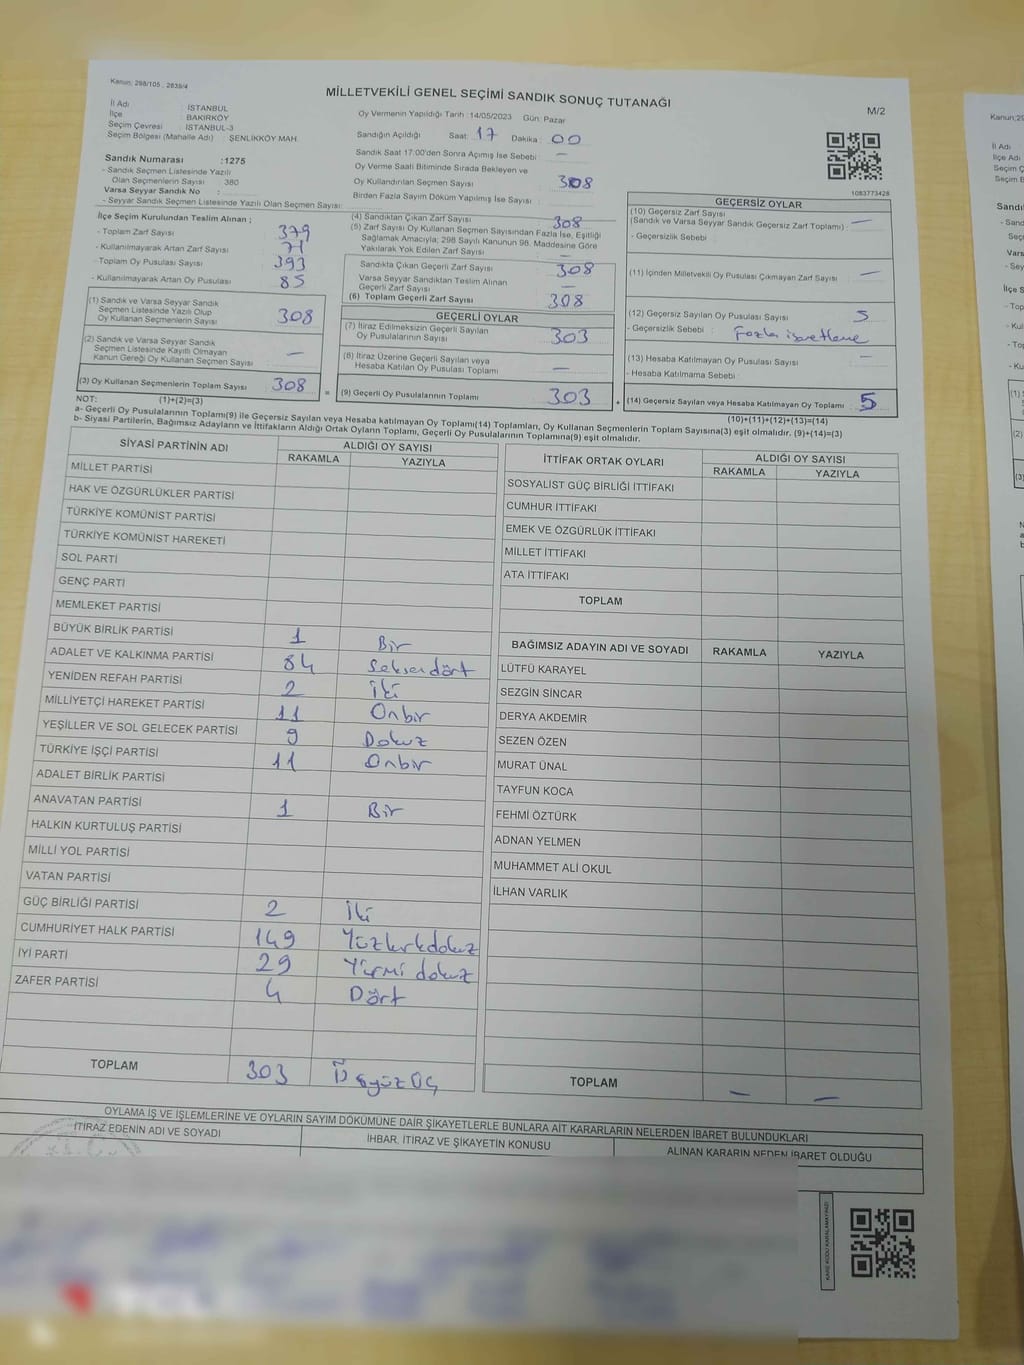 Kanun: 298/105 , 2839/4
MİLLETVEKİLİ GENEL SEÇİMİ SANDIK SONUÇ TUTANAĞI
M/2
İl Adı : İSTANBUL
İlçe : BAKIRKÖY
Seçim Çevresi : İSTANBUL-3
Seçim Bölgesi (Mahalle Adı) : ŞENLİKKÖY MAH.
Sandık Numarası :1275
- Sandık Seçmen Listesinde Yazılı
Olan Seçmenlerin Sayısı : 380
Varsa Seyyar Sandık No :
- Seyyar Sandık Seçmen Listesinde Yazılı Olan Seçmen Sayısı:
Oy Vermenin Yapıldığı Tarih :14/05/2023 Gün: Pazar
Sandığın Açıldığı Saat: 17 Dakika : 00
Sandık Saat 17:00'den Sonra Açımış İse Sebebi : —
Oy Verme Saati Bitiminde Sırada Bekleyen ve
Oy Kullandırılan Seçmen Sayısı : 308
Birden Fazla Sayım Döküm Yapılmış İse Sayısı :
1083773428
İlçe Seçim Kurulundan Teslim Alınan ;
- Toplam Zarf Sayısı : 379
- Kullanılmayarak Artan Zarf Sayısı : 71
- Toplam Oy Pusulası Sayısı : 393
- Kullanılmayarak Artan Oy Pusulası : 85
(1) Sandık ve Varsa Seyyar Sandık
Seçmen Listesinde Yazılı Olup
Oy Kullanan Seçmenlerin Sayısı : 308
(2) Sandık ve Varsa Seyyar Sandık
Seçmen Listesinde Kayıtlı Olmayan
Kanun Gereği Oy Kullanan Seçmen Sayısı : —
(3) Oy Kullanan Seçmenlerin Toplam Sayısı : 308
(4) Sandıktan Çıkan Zarf Sayısı : 308
(5) Zarf Sayısı Oy Kullanan Seçmen Sayısından Fazla İse, Eşitliği
Sağlamak Amacıyla; 298 Sayılı Kanunun 98. Maddesine Göre
Yakılarak Yok Edilen Zarf Sayısı : —
Sandıkta Çıkan Geçerli Zarf Sayısı : 308
Varsa Seyyar Sandıktan Teslim Alınan
Geçerli Zarf Sayısı : —
(6) Toplam Geçerli Zarf Sayısı : 308
GEÇERLİ OYLAR
(7) İtiraz Edilmeksizin Geçerli Sayılan
Oy Pusulalarının Sayısı : 303
(8) İtiraz Üzerine Geçerli Sayılan veya
Hesaba Katılan Oy Pusulası Toplamı : —
= (9) Geçerli Oy Pusulalarının Toplamı : 303
GEÇERSİZ OYLAR
(10) Geçersiz Zarf Sayısı
(Sandık ve Varsa Seyyar Sandık Geçersiz Zarf Toplamı) : —
- Geçersizlik Sebebi :
(11) İçinden Milletvekili Oy Pusulası Çıkmayan Zarf Sayısı : —
(12) Geçersiz Sayılan Oy Pusulası Sayısı : 5
- Geçersizlik Sebebi : Fazla işaretleme
(13) Hesaba Katılmayan Oy Pusulası Sayısı : —
- Hesaba Katılmama Sebebi :
+ (14) Geçersiz Sayılan veya Hesaba Katılmayan Oy Toplamı : 5
NOT: (1)+(2)=(3)
(10)+(11)+(12)+(13)=(14)
a- Geçerli Oy Pusulalarının Toplamı(9) ile Geçersiz Sayılan veya Hesaba katılmayan Oy Toplamı(14) Toplamları, Oy Kullanan Seçmenlerin Toplam Sayısına(3) eşit olmalıdır. (9)+(14)=(3)
b- Siyasi Partilerin, Bağımsız Adayların ve İttifakların Aldığı Ortak Oyların Toplamı, Geçerli Oy Pusulalarının Toplamına(9) eşit olmalıdır.
SİYASİ PARTİNİN ADI ALDIĞI OY SAYISI
RAKAMLA YAZIYLA
MİLLET PARTİSİ
HAK VE ÖZGÜRLÜKLER PARTİSİ
TÜRKİYE KOMÜNİST PARTİSİ
TÜRKİYE KOMÜNİST HAREKETİ
SOL PARTİ
GENÇ PARTİ
MEMLEKET PARTİSİ
BÜYÜK BİRLİK PARTİSİ 1 Bir
ADALET VE KALKINMA PARTİSİ 84 Seksendört
YENİDEN REFAH PARTİSİ 2 İki
MİLLİYETÇİ HAREKET PARTİSİ 11 Onbir
YEŞİLLER VE SOL GELECEK PARTİSİ 9 Dokuz
TÜRKİYE İŞÇİ PARTİSİ 11 Onbir
ADALET BİRLİK PARTİSİ
ANAVATAN PARTİSİ 1 Bir
HALKIN KURTULUŞ PARTİSİ
MİLLİ YOL PARTİSİ
VATAN PARTİSİ
GÜÇ BİRLİĞİ PARTİSİ 2 İki
CUMHURİYET HALK PARTİSİ 149 Yüzkırkdokuz
İYİ PARTİ 29 Yirmi dokuz
ZAFER PARTİSİ 4 Dört
TOPLAM 303 Üçyüz Üç
İTTİFAK ORTAK OYLARI ALDIĞI OY SAYISI
RAKAMLA YAZIYLA
SOSYALİST GÜÇ BİRLİĞİ İTTİFAKI
CUMHUR İTTİFAKI
EMEK VE ÖZGÜRLÜK İTTİFAKI
MİLLET İTTİFAKI
ATA İTTİFAKI
TOPLAM
BAĞIMSIZ ADAYIN ADI VE SOYADI RAKAMLA YAZIYLA
LÜTFÜ KARAYEL
SEZGİN SİNCAR
DERYA AKDEMİR
SEZEN ÖZEN
MURAT ÜNAL
TAYFUN KOCA
FEHMİ ÖZTÜRK
ADNAN YELMEN
MUHAMMET ALİ OKUL
İLHAN VARLIK
TOPLAM — —
OYLAMA İŞ VE İŞLEMLERİNE VE OYLARIN SAYIM DÖKÜMÜNE DAİR ŞİKAYETLERLE BUNLARA AİT KARARLARIN NELERDEN İBARET BULUNDUKLARI
İTİRAZ EDENİN ADI VE SOYADI İHBAR, İTİRAZ VE ŞİKAYETİN KONUSU ALINAN KARARIN NEDEN İBARET OLDUĞU
KARE KODU KARALAMAYINIZ!